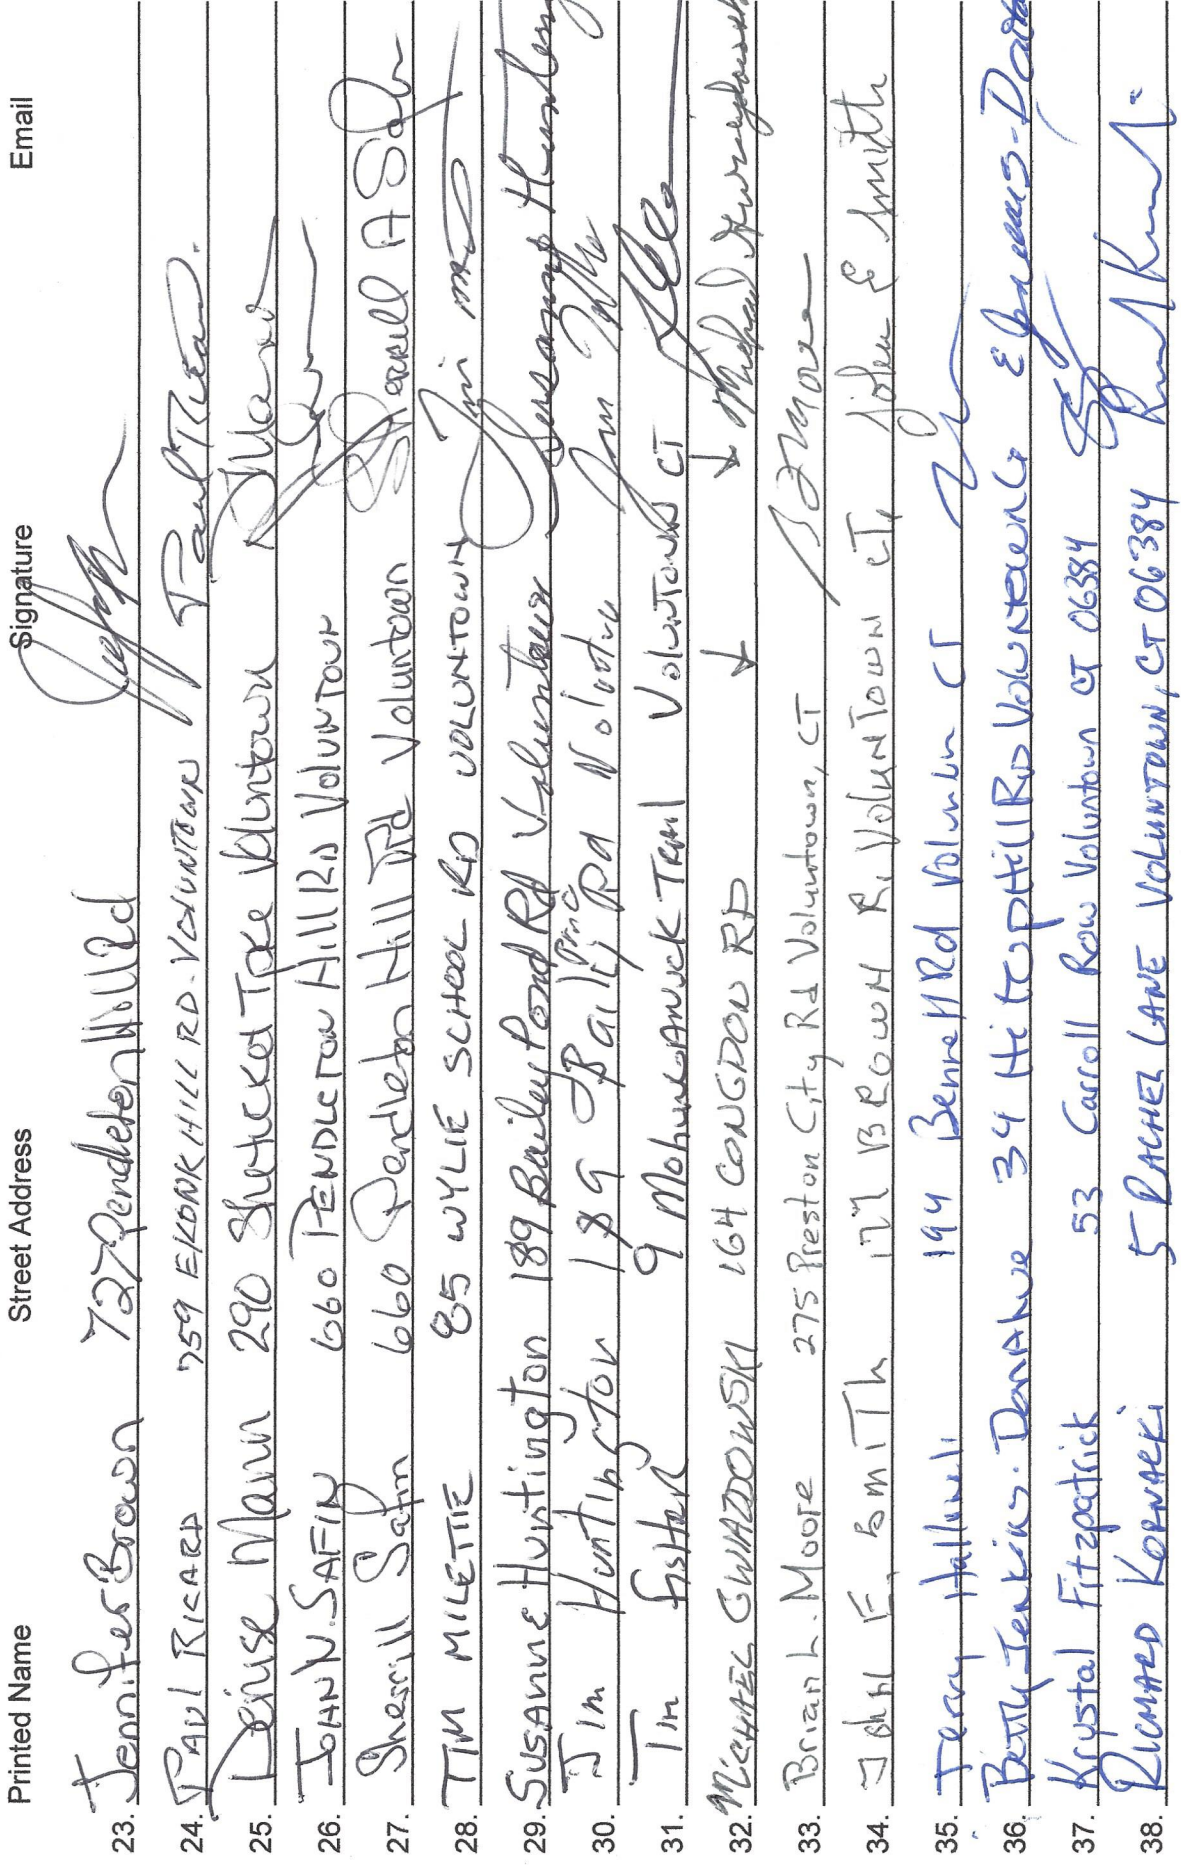 Printed Name Street Address Signature Email
23. Jennifer Brown 727 Pendleton Hill Rd
24. PAUL RICARD 759 EKONK HILL RD - VOLUNTOWN Paul Ricard
25. Denise Mann 290 Shetucket Tpke Voluntown D Mann
26. JOHN N. SAFIN 660 PENDLETON Hill RD VOLUNTOWN
27. Sherrill Safin 660 Pendleton Hill Rd Voluntown Sherrill A Safin
28. TIM MILETTE 85 WYLIE SCHOOL RD VOLUNTOWN
29. Susanne Huntington 189 Bailey Pond Rd Voluntown Susanne Hunting
30. Jim Huntington 189 Bailey Pond Rd
31. Tim Fisher 9 Trail VOLUNTOWN CT
32. MICHAEL GWIAZDOWSKI 164 CONGDON RD ↓ ↓ Michael Gwiazdowski
33. Brian L. Moore 275 Preston City Rd Voluntown, CT B L Moore
34. John E. Smith BROWN R. VOLUNTOWN CT, John E Smith
35. Jerry 194 Bennett Rd CT
36. Betty Jenkins-Donahue 34 Hilltop Hill RD
37. Krystal Fitzpatrick 53 Carroll Row Voluntown CT 06384
38. RICHARD KORNACKI 5 RACHEL LANE VOLUNTOWN, CT 06384